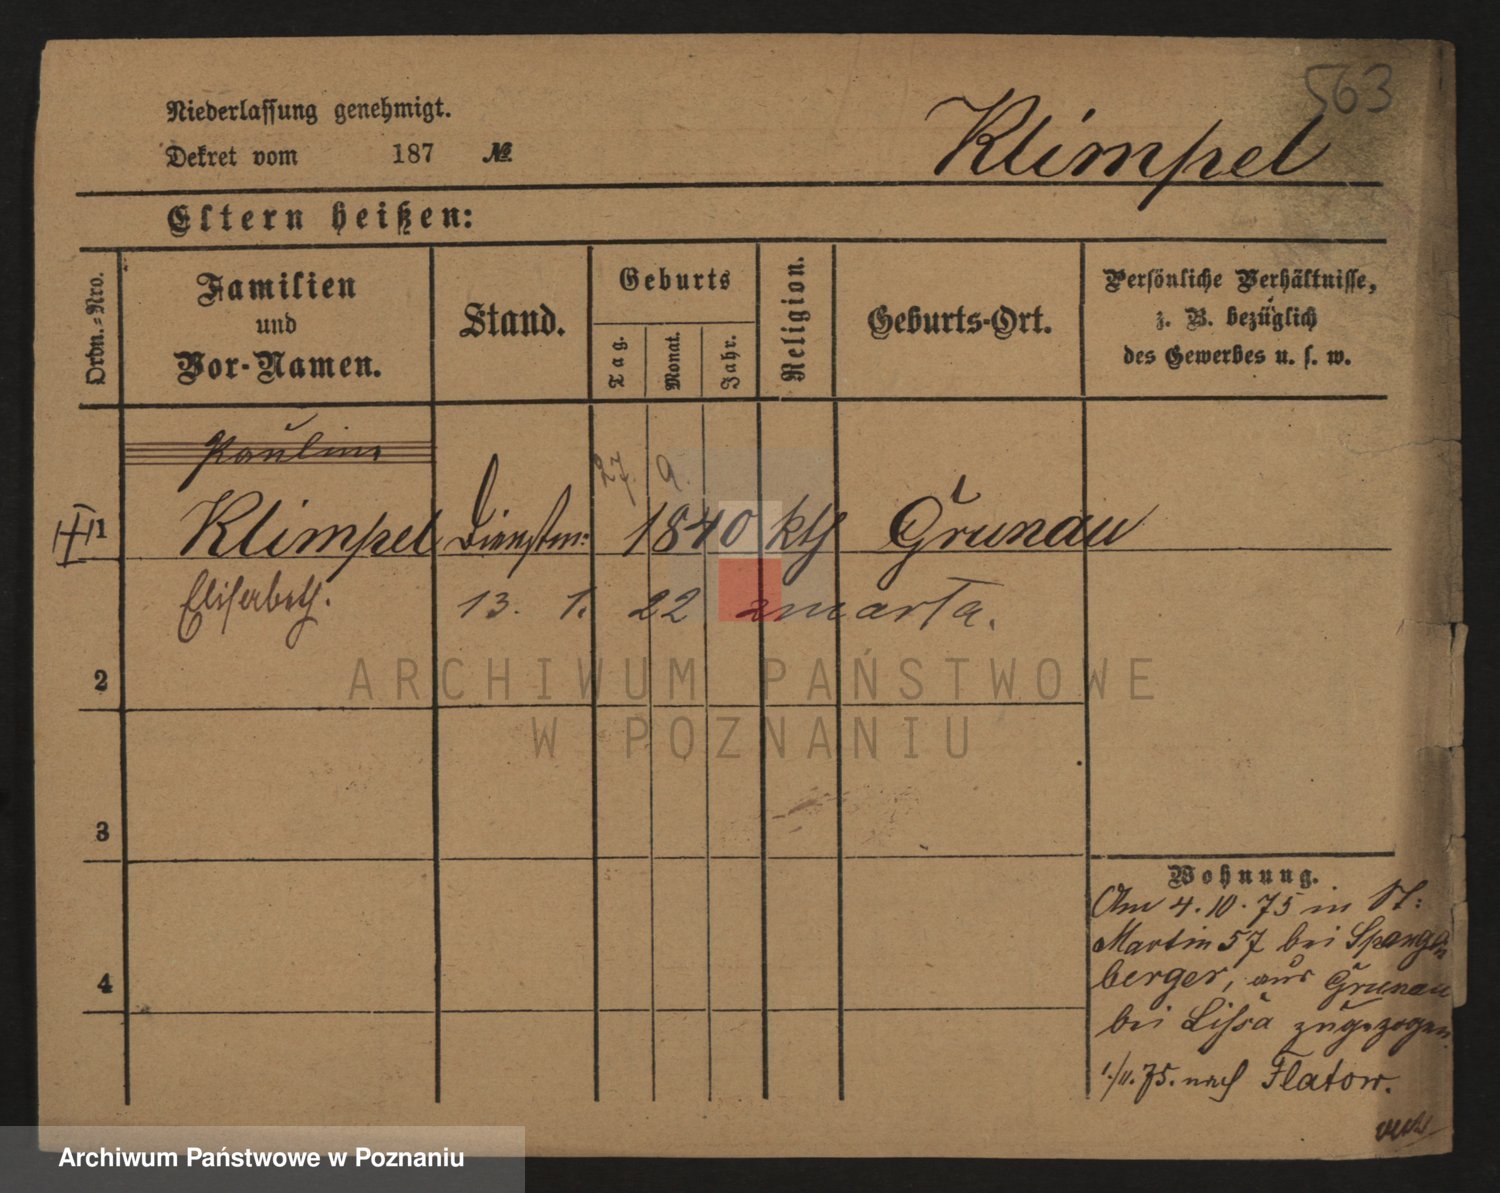 563
Niederlassung genehmigt.
Dekret vom 187 №
Klimpel
Eltern heißen:
Ordn.-Nro.
Familien
und
Vor-Namen.
Stand.
Geburts
Tag.
Monat.
Jahr.
Religion.
Geburts-Ort.
Persönliche Verhältnisse,
z. B. bezüglich
des Gewerbes u. s. w.
Pauline
27. 9.
1 Klimpel Dienstm: 1840 kth Grunau
Elisabeth.
13. 1. 22 zmarła.
2
ARCHIWUM PAŃSTWOWE
W POZNANIU
3
Wohnung.
Am 4.10.75 in St:
Martin 57 bei Spangen
berger, aus Grunau
4
bei Lissa zugezogen.
1./11.75. nach Flatow.
Archiwum Państwowe w Poznaniu